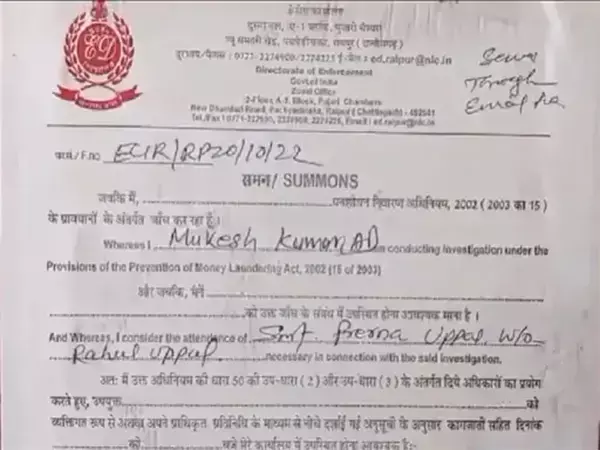 ED
दूसरा तल, ए-1 ब्लॉक, पुजारी चेम्बर
न्यू धमतरी रोड, पचपेड़ीनाका, रायपुर (छत्तीसगढ़)
ई-मेल : ed.raipur@nic.in
Directorate of Enforcement
Govt. of India
Zonal Office
2-Floor, A-1, Block, Pujari Chambers
New Dhamtari Road, Pachpedinaka, Raipur ( Chhattisgarh) - 492001
Email : ed.raipur@nic.in
Through
Email
F.no ECIR/RPZO/10/22
समन/ SUMMONS
जबकि में, धनशोधन निवारण अधिनियम, 2002 (2003 का 15)
के प्रावधानों के अंतर्गत जाँच कर रहा हूँ।
Whereas I Mukesh Kumar AD am conducting investigation under the
Provisions of the Prevention of Money Laundering Act, 2002 (15 of 2003)
और जबकि, मैंने
को उक्त जाँच के संबंध में उपस्थित होना आवश्यक माना है।
And Whereas, I consider the attendance of Smt. Prerna Uppal W/o
Rahul Uppal necessary in connection with the said investigation.
अतः मैं उक्त अधिनियम की धारा 50 की उप-धारा (2) और उप-धारा (3) के अंतर्गत दिये अधिकारों का प्रयोग
करते हुए, उपयुक्त को
व्यक्तिगत रूप से अथवा अपने प्राधिकृत प्रतिनिधि के माध्यम से नीचे दर्शाई गई अनुसूची के अनुसार कागजातों सहित दिनांक
को बजे मेरे कार्यालय में उपस्थित होना आवश्यक है:-